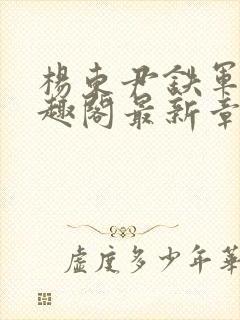 楊東尹鉄軍
趣閣最新章
虛度多少年華